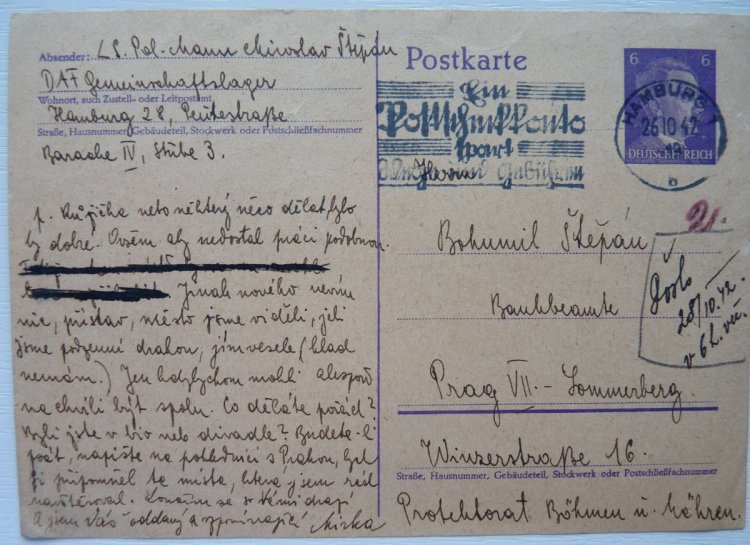 Absender: LS. Pol-Mann Miroslav Štěpán
DAF Gemeinschaftslager
Wohnort, auch Zustell- oder Leitpostamt
Hamburg 28, Peutestraße
Straße, Hausnummer, Gebäudeteil, Stockwerk oder Postschließfachnummer
Barache IV, Stube 3.
p. Růžička neto některý něco dělat, bylo
by dobře. Ovšem aby nedostal práci podobnou
Jinak nového nevím
nic, přístav, město jsme viděli, jeli
jsme podzemní drahou, jím vesele (hlad
nemám.) Jen kdybychom mohli alespoň
na chvíli být spolu. Co děláte pořád?
Byli jste v bio neb divadle? Budete-li
psát, napište na pohlednici s Prahou, bych
si připomněl ta místa, která jsem rád
navštěvoval. Loučím se s Vámi drazí
a jsem Váš oddaný a vzpomínající Mirka
Postkarte
6 6
DEUTSCHES REICH
HAMBURG 1
26.10.42
b
Ein
Postscheckkonto
spart
Gebühren
Herrn
21.
Bohumil Štěpán
Bankbeamte
Prag VII. - Sommerberg.
Winzerstraße 16.
Straße, Hausnummer, Gebäudeteil, Stockwerk oder Postschließfachnummer
Protektorat Böhmen u. Mähren.
Došlo
28/10.42.
v 6 h. več.